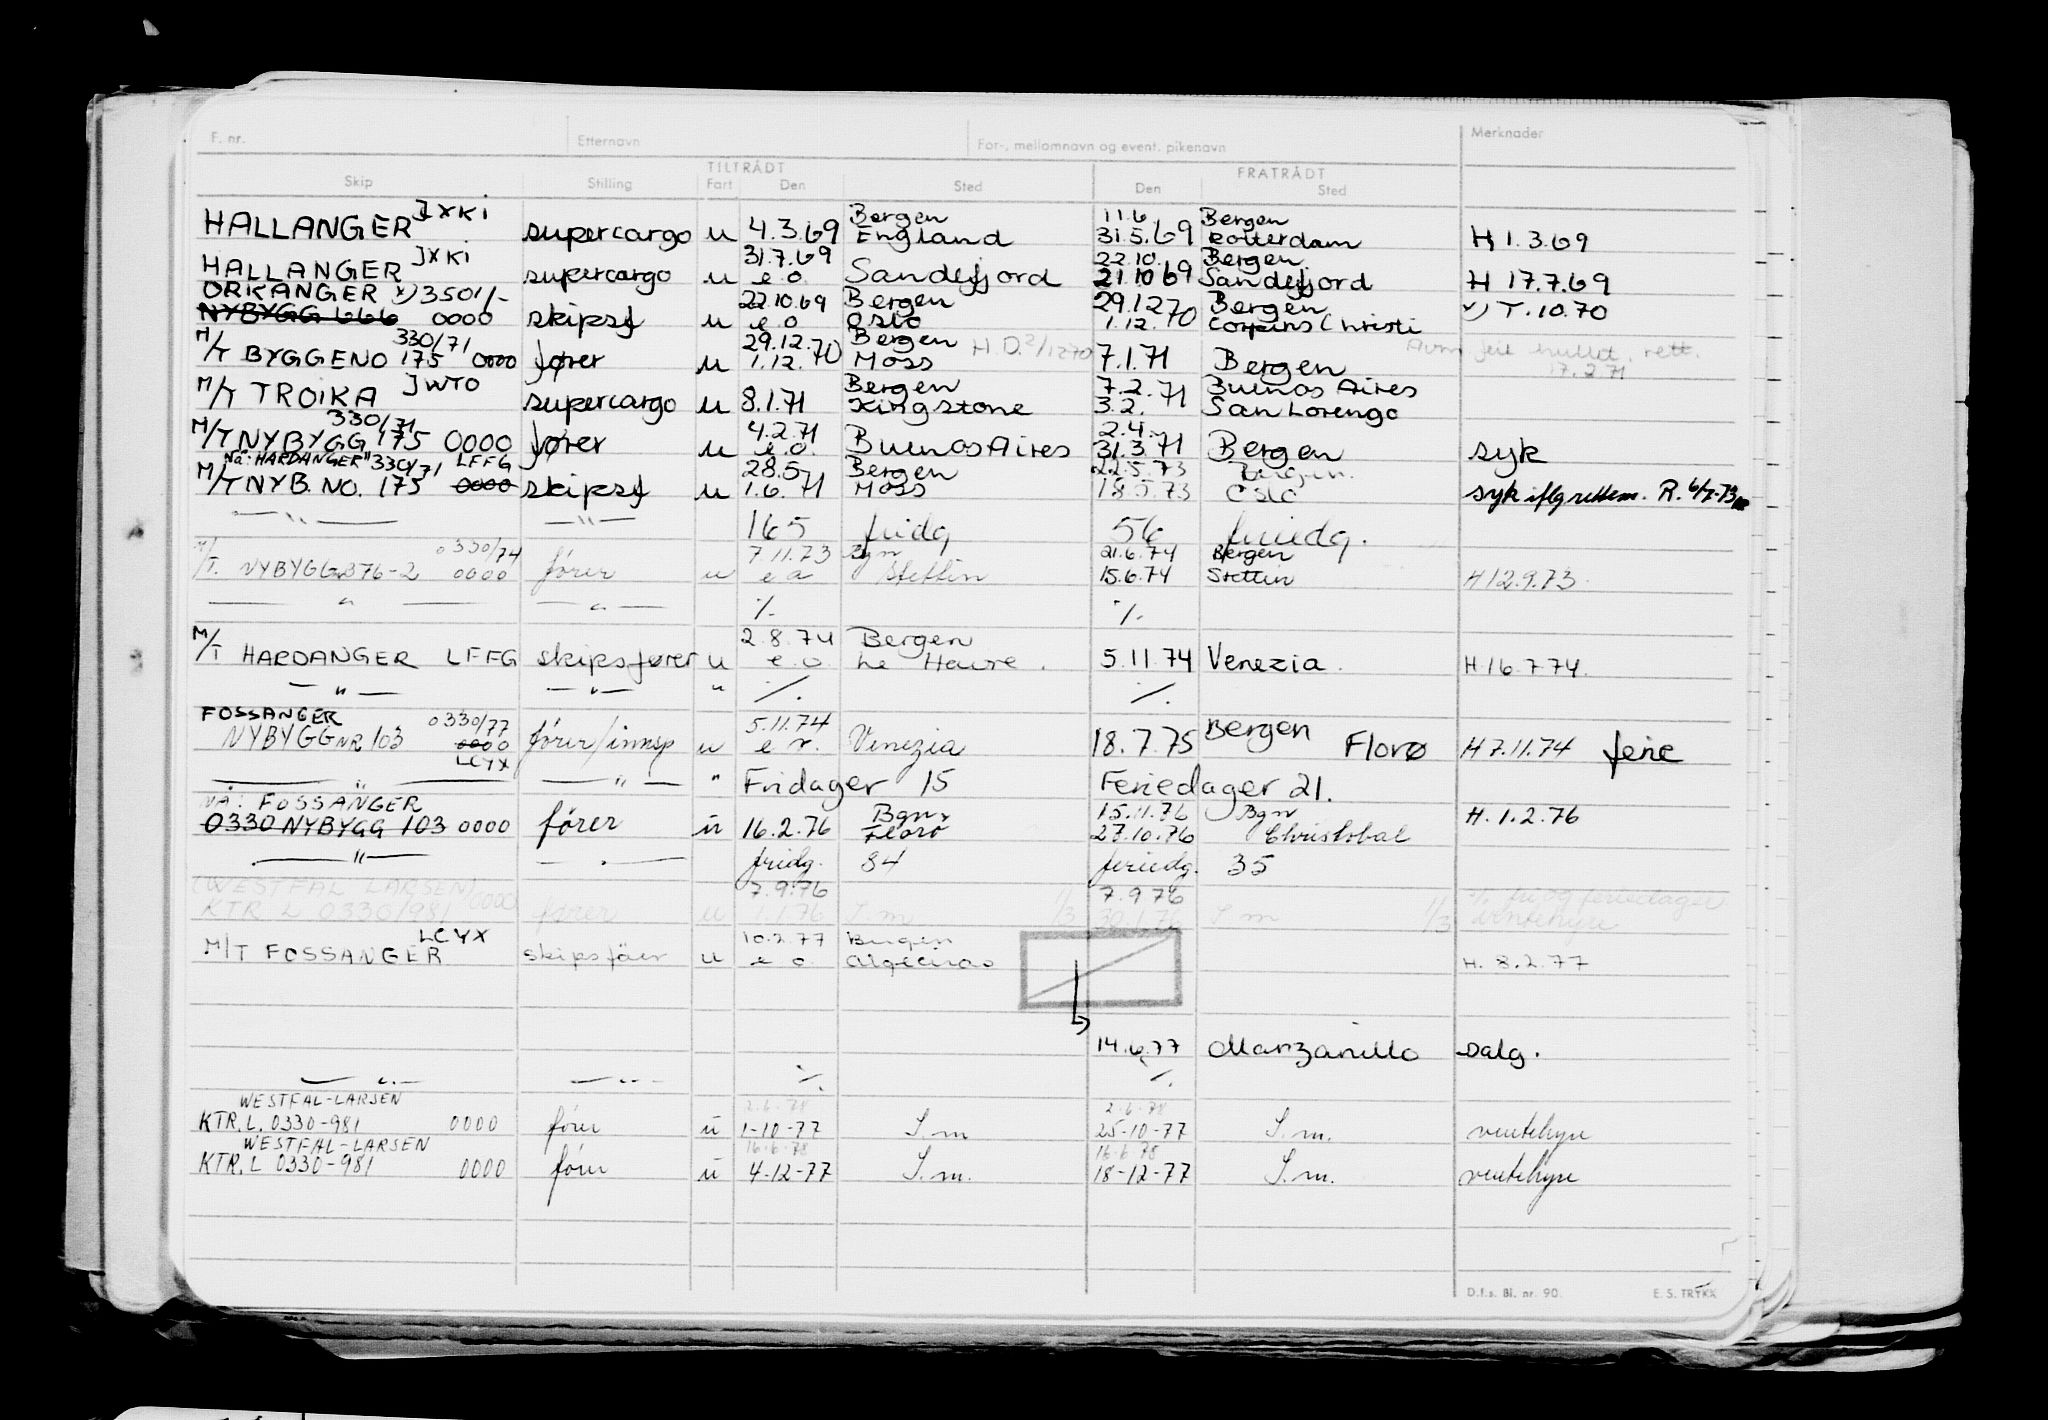 F. nr. Etternavn For-, mellomnavn og event. pikenavn Merknader
TILTRÅDT FRATRÅDT
Skip Stilling Fart Den Sted Den Sted
JXKI Bergen 11.6. Bergen
HALLANGER supercargo u 4.3.69 England 31.5.69 Rotterdam H 1.3.69
JXKI 31.7.69 22.10. Bergen
HALLANGER supercargo u e.o Sandefjord 21.10 69 Sandefjord H 17.7.69
ORKANGER x) 3501/- 22.10.69 Bergen 29.12 70 Bergen
NYBYGG 666 0000 skipsf u e.o Oslo 1.12. Corpus Christi x) T.10.70
330/71 29.12. Bergen
M/T BYGGENO 175 0000 fører u 1.12.70 Moss H.D. 2/12 70 7.1.71 Bergen feil hullet. rett. 17.2.71
M/T TROIKA JWTO Bergen 7.2. Buenos Aires
supercargo u 8.1.71 Kingstone 3.2. 71 San Lorengo
330/71 4.2.71 2.4.
M/T NYBYGG 175 0000 fører u e.o. Buenos Aires 31.3.71 Bergen syk
Nå: HARDANGER" 330/71 LFFG 28.5 Bergen 22.5.73 Bergen
M/T NYB. NO. 175 0000 skipsf u 1.6. 71 Moss 18.5.73 Oslo syk iflg rettem. R. 6/7-73
—"— —"— 165 fridg 56 feriedg.
0330/74 7.11.73 Bgn 21.6.74 Bergen
M/T. NYBYGG B76-2 0000 fører u e o Stettin 15.6.74 Stettin H 12.9.73.
—"— —"— %. %.
2.8.74 Bergen
M/T HARDANGER LFFG skipsfører u e.o. Le Havre. 5.11.74 Venezia. H.16.7 74.
—"— —"— " %. %.
FOSSANGER 0330/77 5.11.74 Bergen
NYBYGG NR 103 0000 fører/innsp u e.o. Venezia 18.7.75 Florø H 7.11.74 ferie
LCYX
—"— —"— " Fridager 15 Feriedager 21.
NÅ: FOSSANGER Bgn 15.11.76 Bgn
0330 NYBYGG 103 0000 fører u 16.2.76 Florø 27.10.76 Christobal H. 1.2.76
—"— —"— fridg. 84 feriedg. 35
(WESTFAL LARSEN) 0000 7.9.76 7.9 76 % fri og feriedager
KTR L 0330/981 fører u 1.1.76 S.m 1/3 30.1.76 S m 1/3 ventehyre
LCYX 10.2.77 Bergen
M/T FOSSANGER skipsfører u e o Algeciras H. 8.2.77
14.6.77 Manzanillo Dalg.
—"— —"— %. %.
WESTFAL-LARSEN 2.6.78 2.6.78
KTR. L. 0330-981 0000 fører u 1-10-77 S.m 25-10-77 S.m. ventehyre
WESTFAL-LARSEN 16.6.78 16.6 78
KTR. L 0330-981 0000 fører u 4-12-77 S.m. 18-12-77 S.m. ventehyre
D.f.s. Bl. nr. 90. E. S. TRYKK